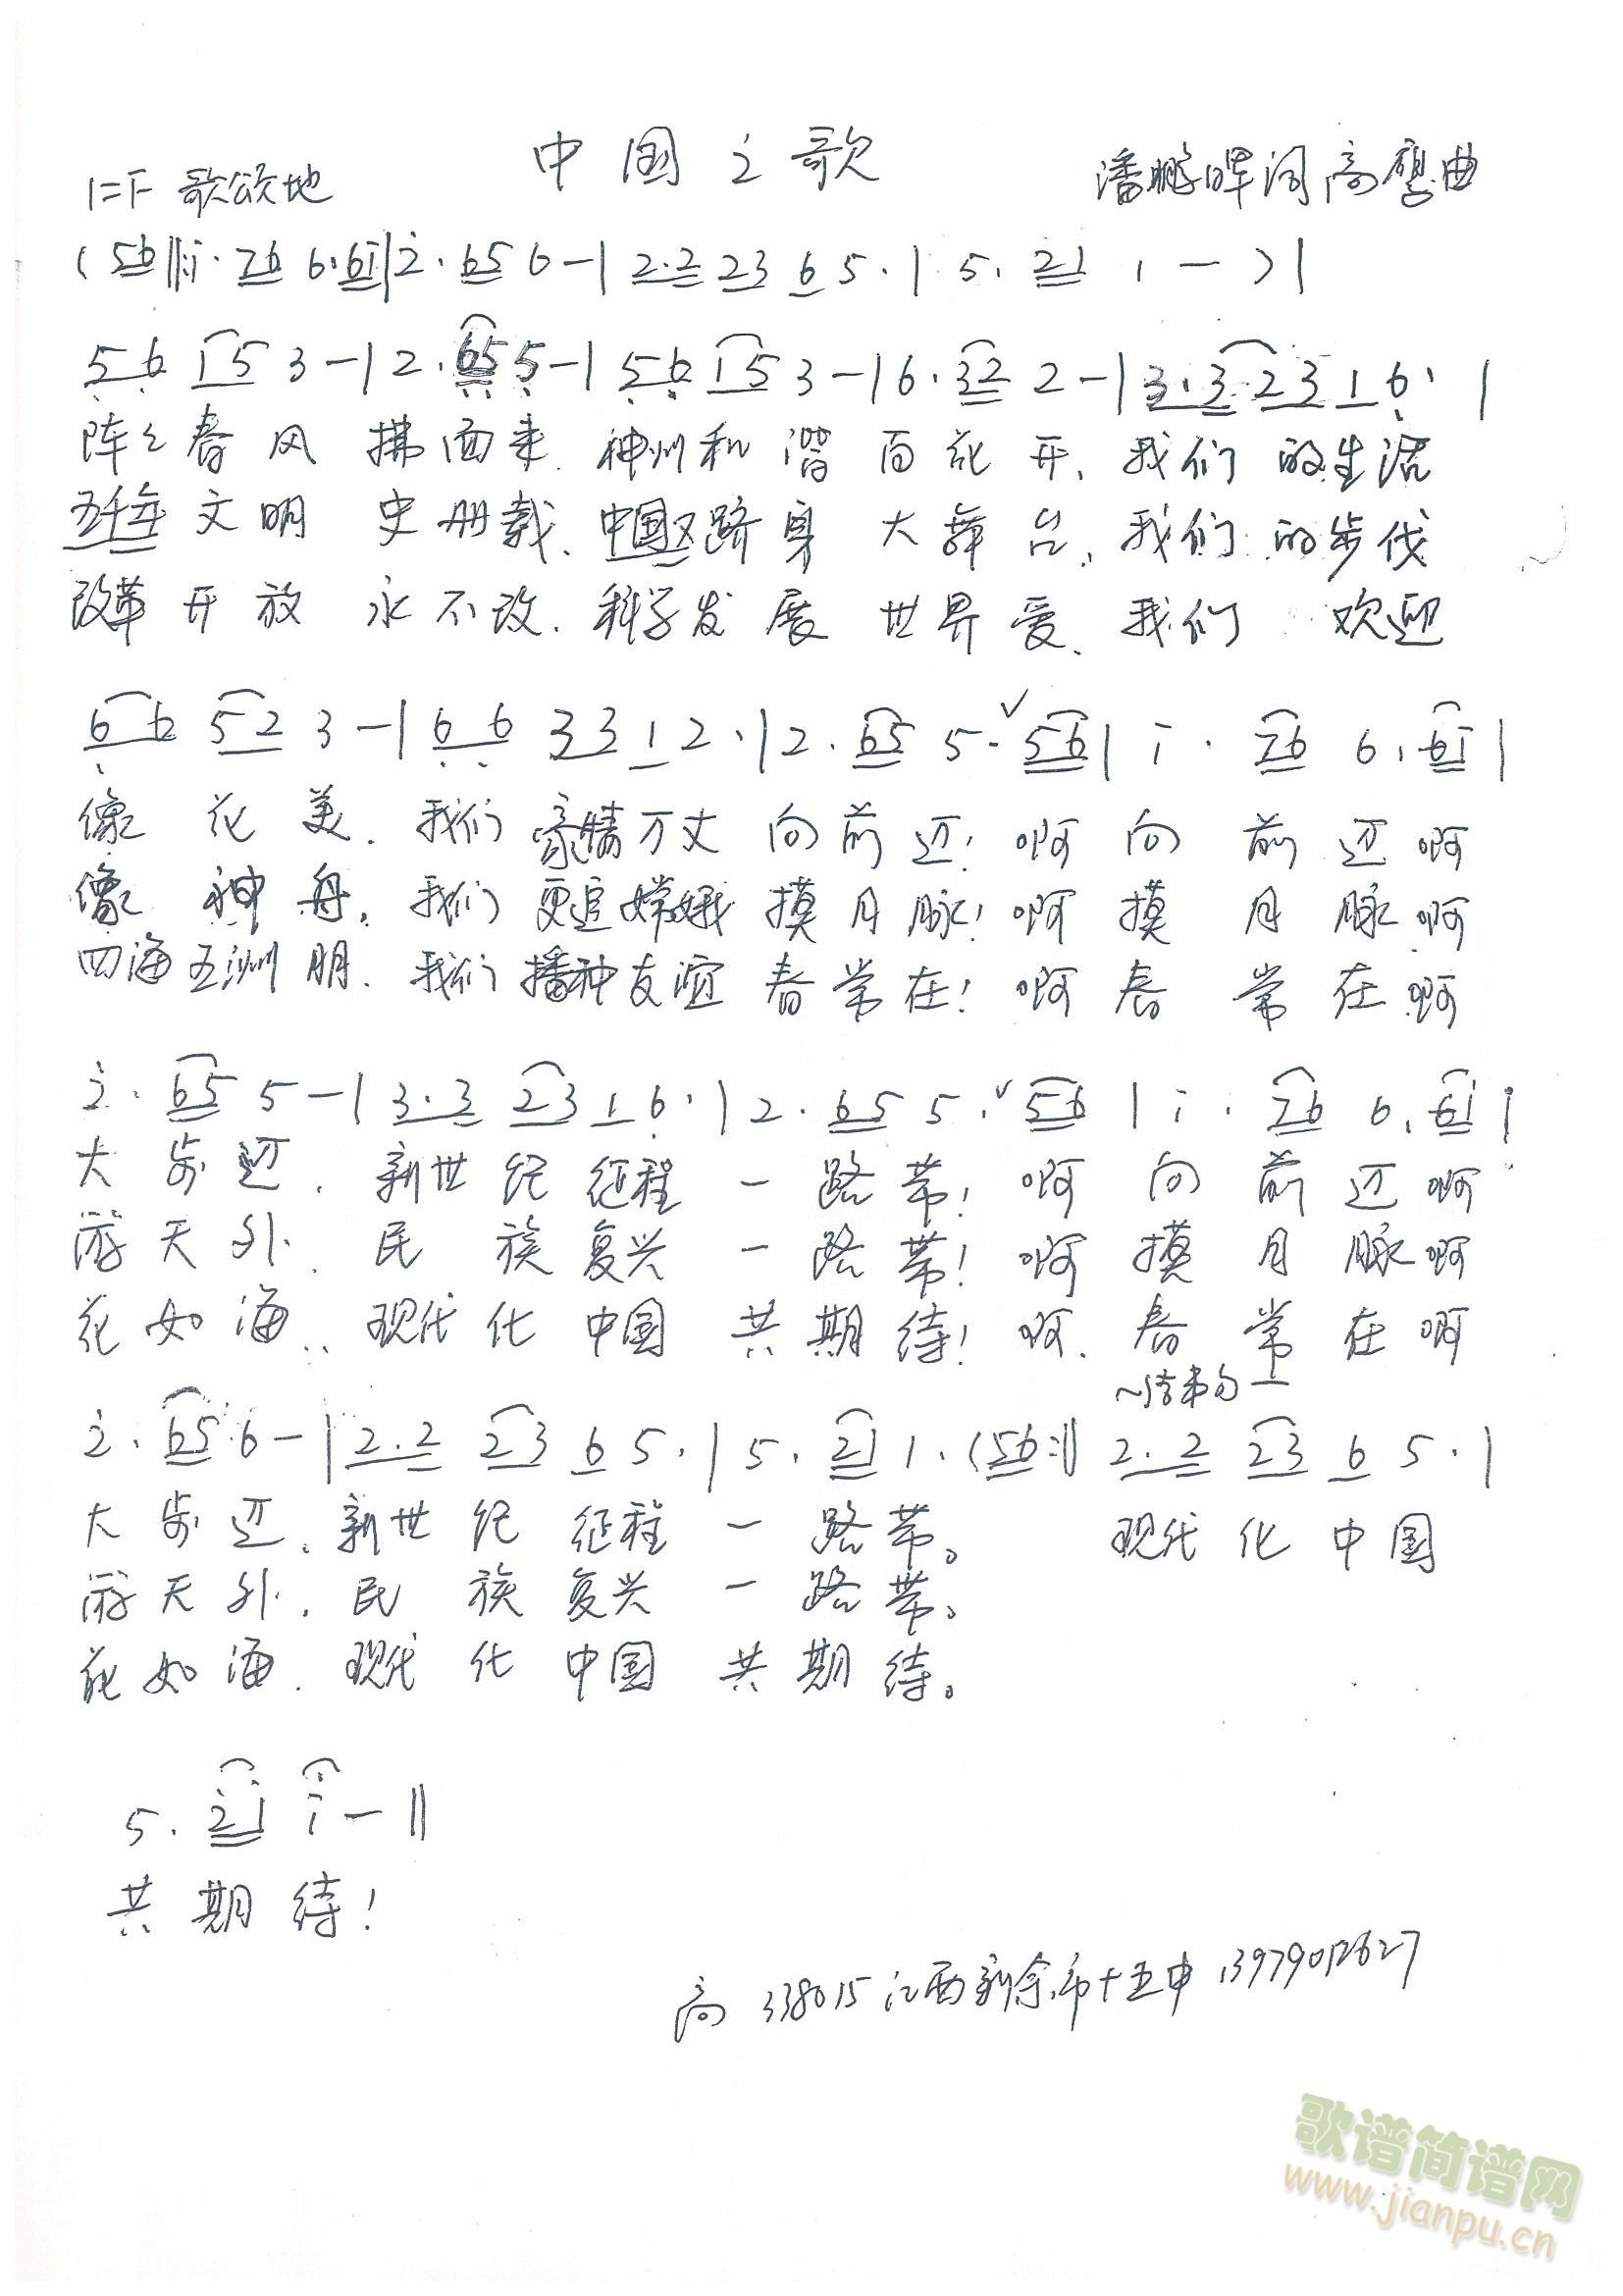 中国之歌
1=F 歌颂地 潘鹏晖词 高鹰曲
( 56 ‖: i · 76 6 · 6i | 2 · 65 6 - | 2·2 23 6 5 · | 5 · 21 1 - ) |
56 15 3 - | 2 · 65 5 - | 56 15 3 - | 6 · 32 2 - | 3·3 23 1 6 · |
阵々春风 拂面来. 神州和谐 百花开, 我们的生活
五千年文明 史册载. 中国又跻身 大舞台, 我们的步伐
改革开放 永不改. 科学发展 世界爱. 我们 欢迎
6 6 52 3 - | 66 33 1 2 · | 2 · 65 5 · ∨ 56 | i · 76 6 · 6i |
像 花美. 我们豪情万丈 向前迈! 啊 向 前迈啊
像 神舟, 我们更追嫦娥 摸月脉! 啊 摸 月脉啊
四海五洲朋. 我们播种友谊 春常在! 啊 春 常在啊
2 · 65 5 - | 3·3 23 1 6 · | 2 · 65 5 · ∨ 56 | i · 76 6 · 6i |
大步迈. 新世纪征程 一路带! 啊 向 前迈啊
游天外. 民族复兴 一路带! 啊 摸 月脉啊
花如海. 现代化中国 共期待! 啊. 春 常在啊
~结束句一
2 · 65 6 - | 2·2 23 6 5 · | 5 · 21 1 · ( 56 :‖ 2·2 23 6 5 · |
大步迈. 新世纪征程 一路带。 现代化中国
游天外. 民族复兴 一路带。
花如海. 现代化中国 共期待。
5 · 2i i - ‖
共期待!
高 338015 江西新余市十五中 13979012627
歌谱简谱网
www.jianpu.cn